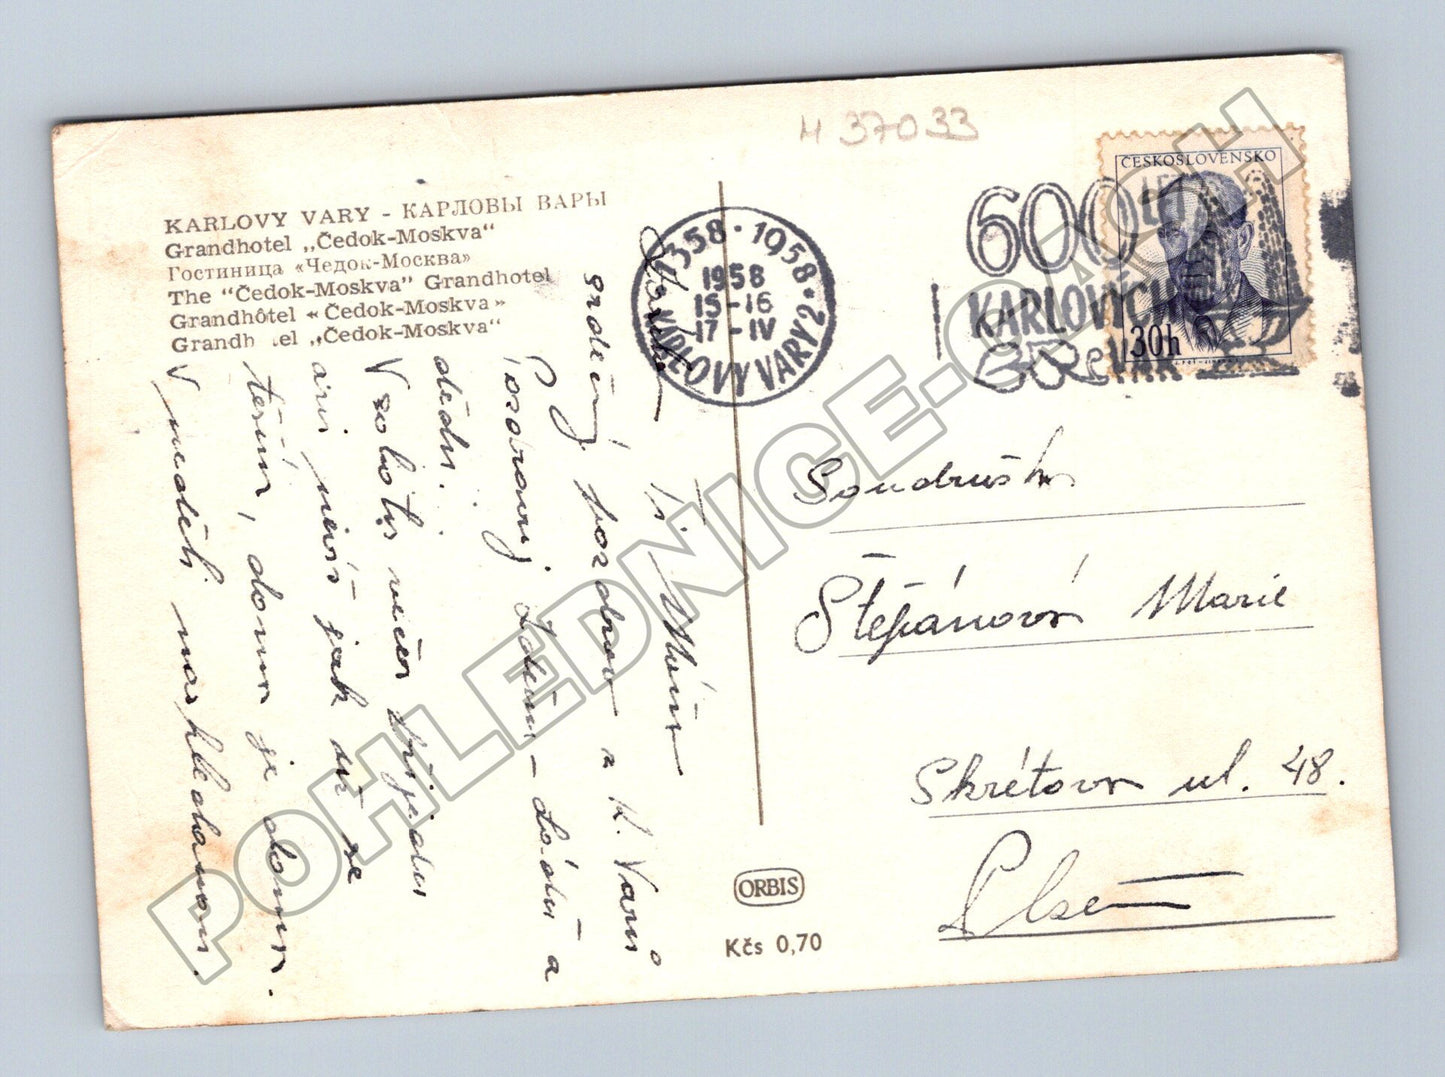 H 37033
KARLOVY VARY - КАРЛОВЫ ВАРЫ
Grandhotel „Čedok-Moskva"
Гостиница «Чедок-Москва»
The "Čedok-Moskva" Grandhotel
Grandhôtel «Čedok-Moskva»
Grandh el „Čedok-Moskva"
1358 · 1958
1958
15-16
17-IV
KARLOVY VARY 2
600 LET
KARLOVÝCH
VAR
ČESKOSLOVENSKO
30h
srdečný pozdrav z K. Varů
Zdeňa - Láďa a
dědu.
V sobotu večer přijedu
jak už se
těším, doma je doma.
V neděli naschledanou.
Soudružka
Štěpánová Marie
Skrétova ul. 48.
Plzeň
ORBIS
Kčs 0,70
POHLEDNICE-CACH